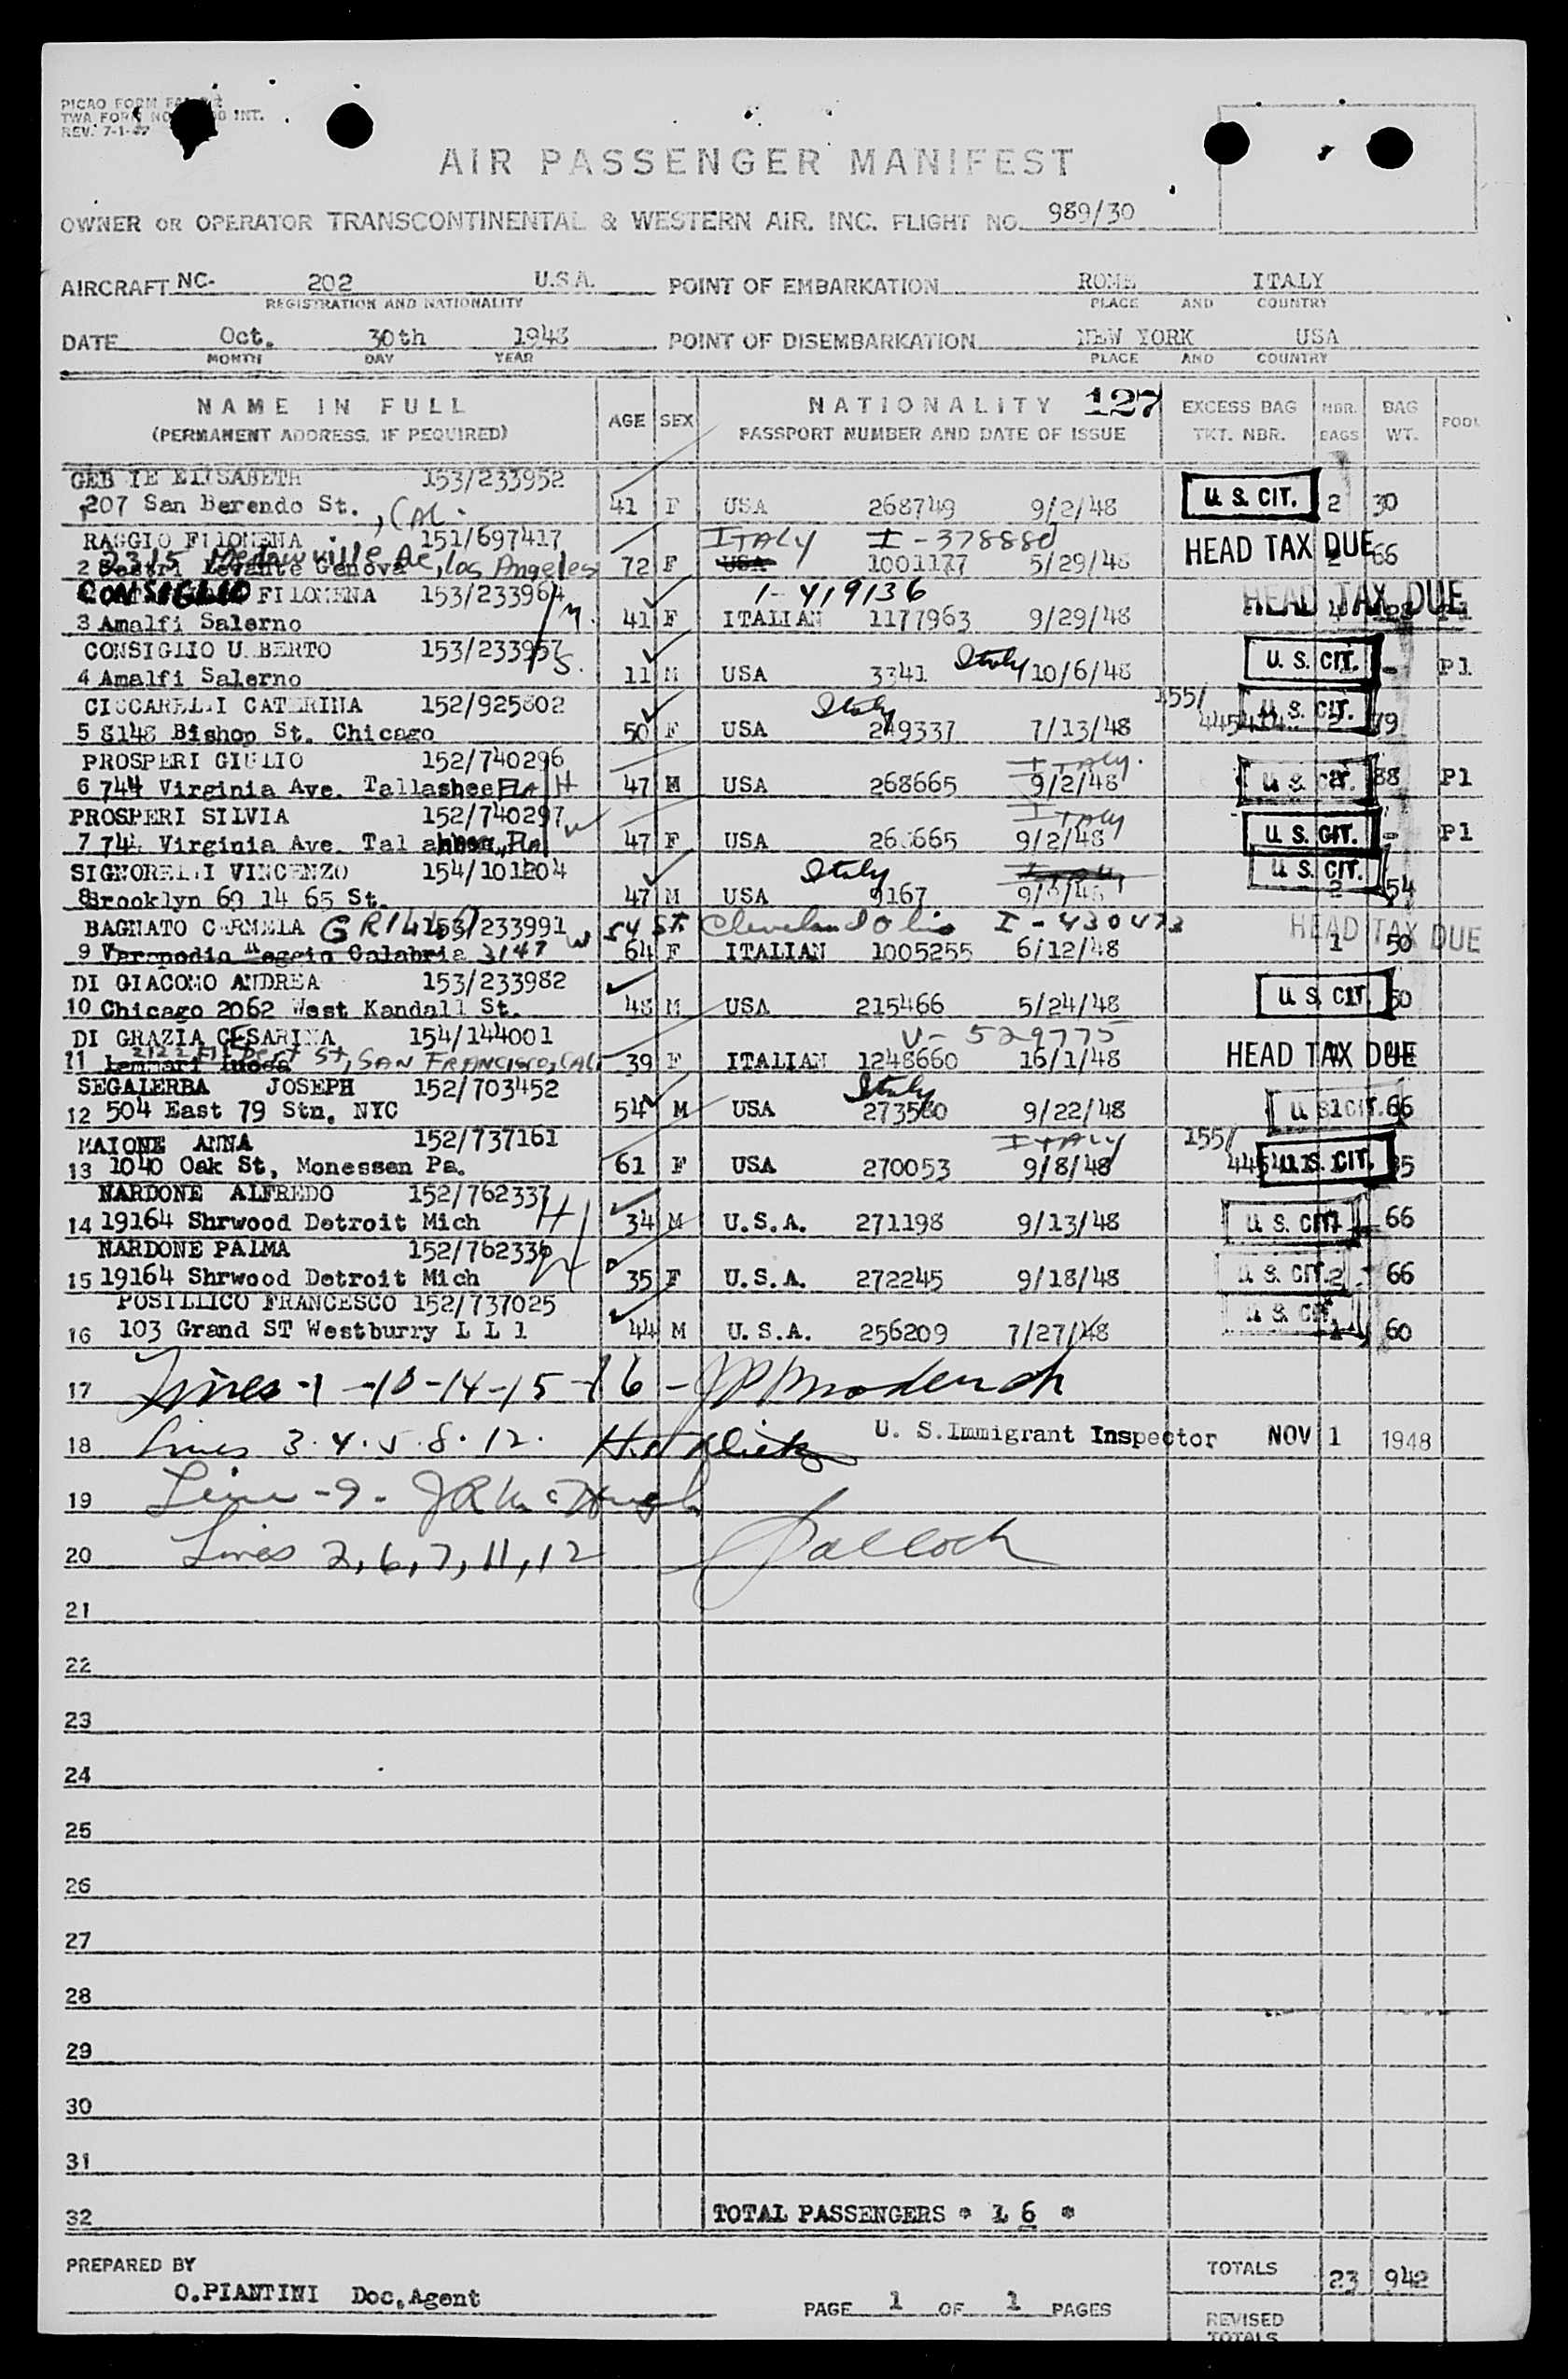 PICAO FORM
TWA FORM NO INT.
REV. 7-1-47
AIR PASSENGER MANIFEST
OWNER OR OPERATOR TRANSCONTINENTAL & WESTERN AIR, INC. FLIGHT NO. 989/30
AIRCRAFT NC- 202 U.S.A. POINT OF EMBARKATION ROME ITALY
REGISTRATION AND NATIONALITY PLACE AND COUNTRY
DATE Oct. 30th 1948 POINT OF DISEMBARKATION NEW YORK USA
MONTH DAY YEAR PLACE AND COUNTRY
NAME IN FULL AGE SEX NATIONALITY 127 EXCESS BAG NBR. BAG POOL
(PERMANENT ADDRESS, IF REQUIRED) PASSPORT NUMBER AND DATE OF ISSUE TKT. NBR. BAGS WT.
ELISABETH 153/233952
207 San Berendo St., CAL. 41 F USA 268749 9/2/48 U. S. CIT. 2 30
RAGGIO FILOMENA 151/697417 ITALY I-378880
2 2315 Ave, Los Angeles Sestri Levante Genova 72 F USA 1001177 5/29/48 HEAD TAX DUE 2 66
CONSIGLIO FILOMENA 153/233964 M. I-419136
3 Amalfi Salerno 41 F ITALIAN 1177963 9/29/48 HEAD TAX DUE P1
CONSIGLIO U BERTO 153/233957 S.
4 Amalfi Salerno 11 M USA 3341 Italy 10/6/48 U. S. CIT. - P1
CICCARELLI CATERINA 152/925802 Italy 155/
5 8148 Bishop St. Chicago 50 F USA 249337 7/13/48 U. S. CIT. 2 79
PROSPERI GIULIO 152/740296 H ITALY.
6 744 Virginia Ave. Tallashee FLA 47 M USA 268665 9/2/48 U. S. CIT. 88 P1
PROSPERI SILVIA 152/740297 W ITALY
7 744 Virginia Ave. Tal FLA 47 F USA 268665 9/2/48 U. S. CIT. - P1
SIGNORELLI VINCENZO 154/101204 Italy
8 Brooklyn 60 14 65 St. 47 M USA 9167 U. S. CIT. 2 54
BAGNATO CARMELA 153/233991 W 54 St Cleveland Ohio I-430473
9 Calabria 3147 64 F ITALIAN 1005255 6/12/48 HEAD TAX DUE 1 50
DI GIACOMO ANDREA 153/233982
10 Chicago 2062 West Kandall St. 48 M USA 215466 5/24/48 U. S. CIT. 50
DI GRAZIA CESARINA 154/144001 V-529775
11 St, SAN FRANCISCO, CAL 39 F ITALIAN 1248660 16/1/48 HEAD TAX DUE
SEGALERBA JOSEPH 152/703452 Italy
12 504 East 79 Stn. NYC 54 M USA 273560 9/22/48 U. S. CIT. 1 66
MAIONE ANNA 152/737161 ITALY 155/
13 1040 Oak St, Monessen Pa. 61 F USA 270053 9/8/48 U. S. CIT.
NARDONE ALFREDO 152/762337 H
14 19164 Shrwood Detroit Mich 34 M U.S.A. 271198 9/13/48 U. S. CIT. 66
NARDONE PALMA 152/762336 W
15 19164 Shrwood Detroit Mich 35 F U.S.A. 272245 9/18/48 U. S. CIT. 2 66
POSILLICO FRANCESCO 152/737025
16 103 Grand ST Westburry L L 1 44 M U.S.A. 256209 7/27/48 U. S. CIT. 1 60
17 Lines -1 -10-14-15-16 -
18 Lines 3.4.5.8.12. U. S. Immigrant Inspector NOV 1 1948
19 Line -9-
20 Lines 2,6,7,11,12
21
22
23
24
25
26
27
28
29
30
31
32 TOTAL PASSENGERS * 16 *
PREPARED BY TOTALS 23 942
O.PIANTINI Doc.Agent
PAGE 1 OF 1 PAGES REVISED
TOTALS